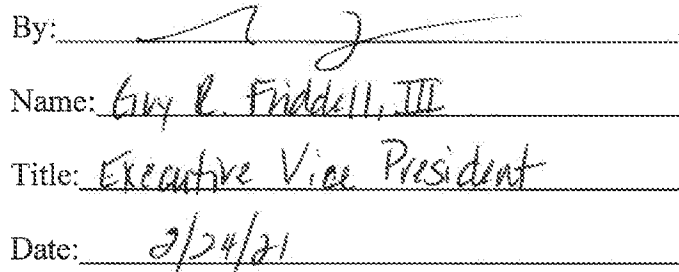 By:
Name: Guy R. Friddell, III
Title: Executive Vice President
Date: 2/24/21